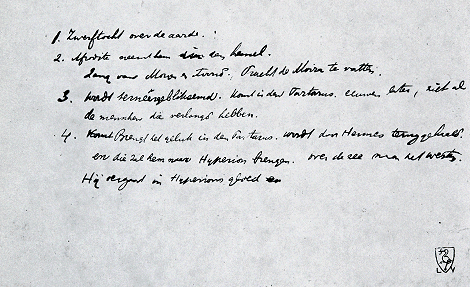 1. Zwerftocht over de aarde.
2. Afrodite neemt hem den hemel.
Zang van Moira . Tracht de Moira te vatten.
3. wordt . Komt in den Tartarus. eeuwen later, ziet al
de menschen die verlangd hebben.
4. Komt Brengt het geluk in den Tartarus. wordt door Hermes teruggehaald
en die zal hem naar Hyperion brengen. over de zee naar het westen.
Hij vergaat in Hyperions gloed